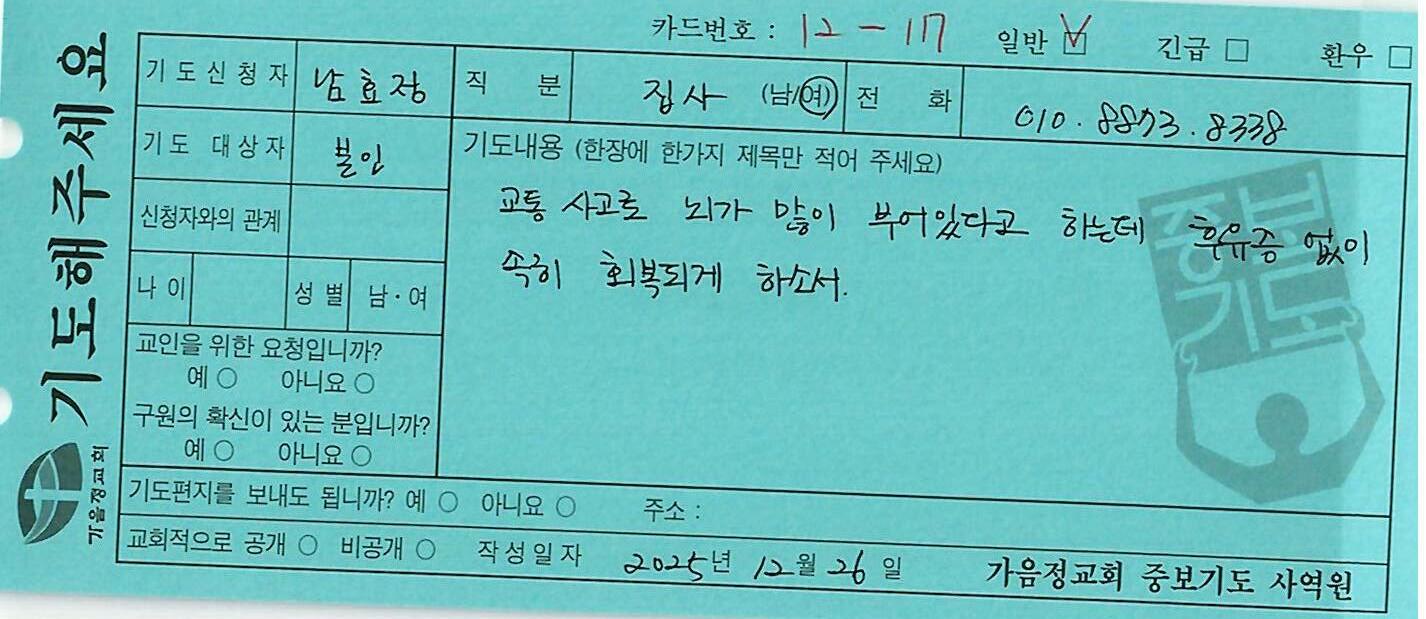 기도해주세요
가음정교회
카드번호 : 12 - 117 일반 ☑ 긴급 □ 환우 □
기도신청자 남효장 직 분 집사 (남/여) 전 화 010. 8873. 8338
기도 대상자 본인
신청자와의 관계
나 이 성 별 남 · 여
교인을 위한 요청입니까?
예 ○ 아니요 ○
구원의 확신이 있는 분입니까?
예 ○ 아니요 ○
기도내용 (한장에 한가지 제목만 적어 주세요)
교통 사고로 뇌가 많이 부어있다고 하는데 후유증 없이
속히 회복되게 하소서.
중보
기도
기도편지를 보내도 됩니까? 예 ○ 아니요 ○ 주소 :
교회적으로 공개 ○ 비공개 ○ 작성일자 2025년 12월 26일 가음정교회 중보기도 사역원